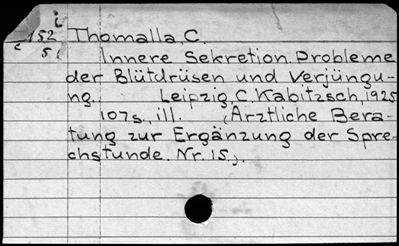 i
152 Thomalla, C.
c 5i Innere Sekretion. Probleme
der Blütdrüsen und Verjüngu-
ng. Leipzig, C. Kabitzsch, 1925
107s., ill. (Ärztliche Bera-
tung zur Ergänzung der Spre-
chstunde. Nr. 15.).